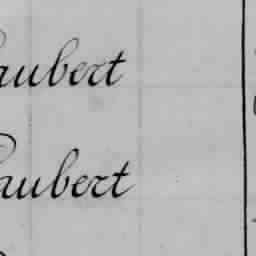 aubert
aubert